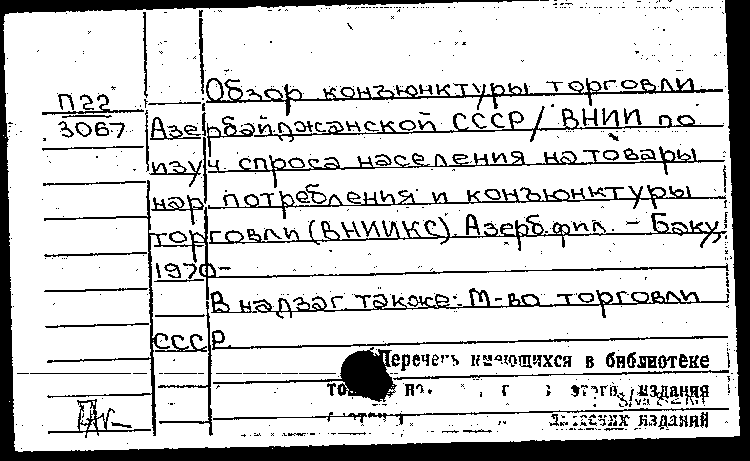 Обзор конъюнктуры торговли
П22
3067
Азербайджанской СССР / ВНИИ по
изуч. спроса населения на товары
нар. потребления и конъюнктуры
торговли (ВНИИКС). Азерб. фил. - Баку,
1970-
В надзаг. также: М-во торговли
СССР.
Перечень имеющихся в библиотеке
этого издания
изданий